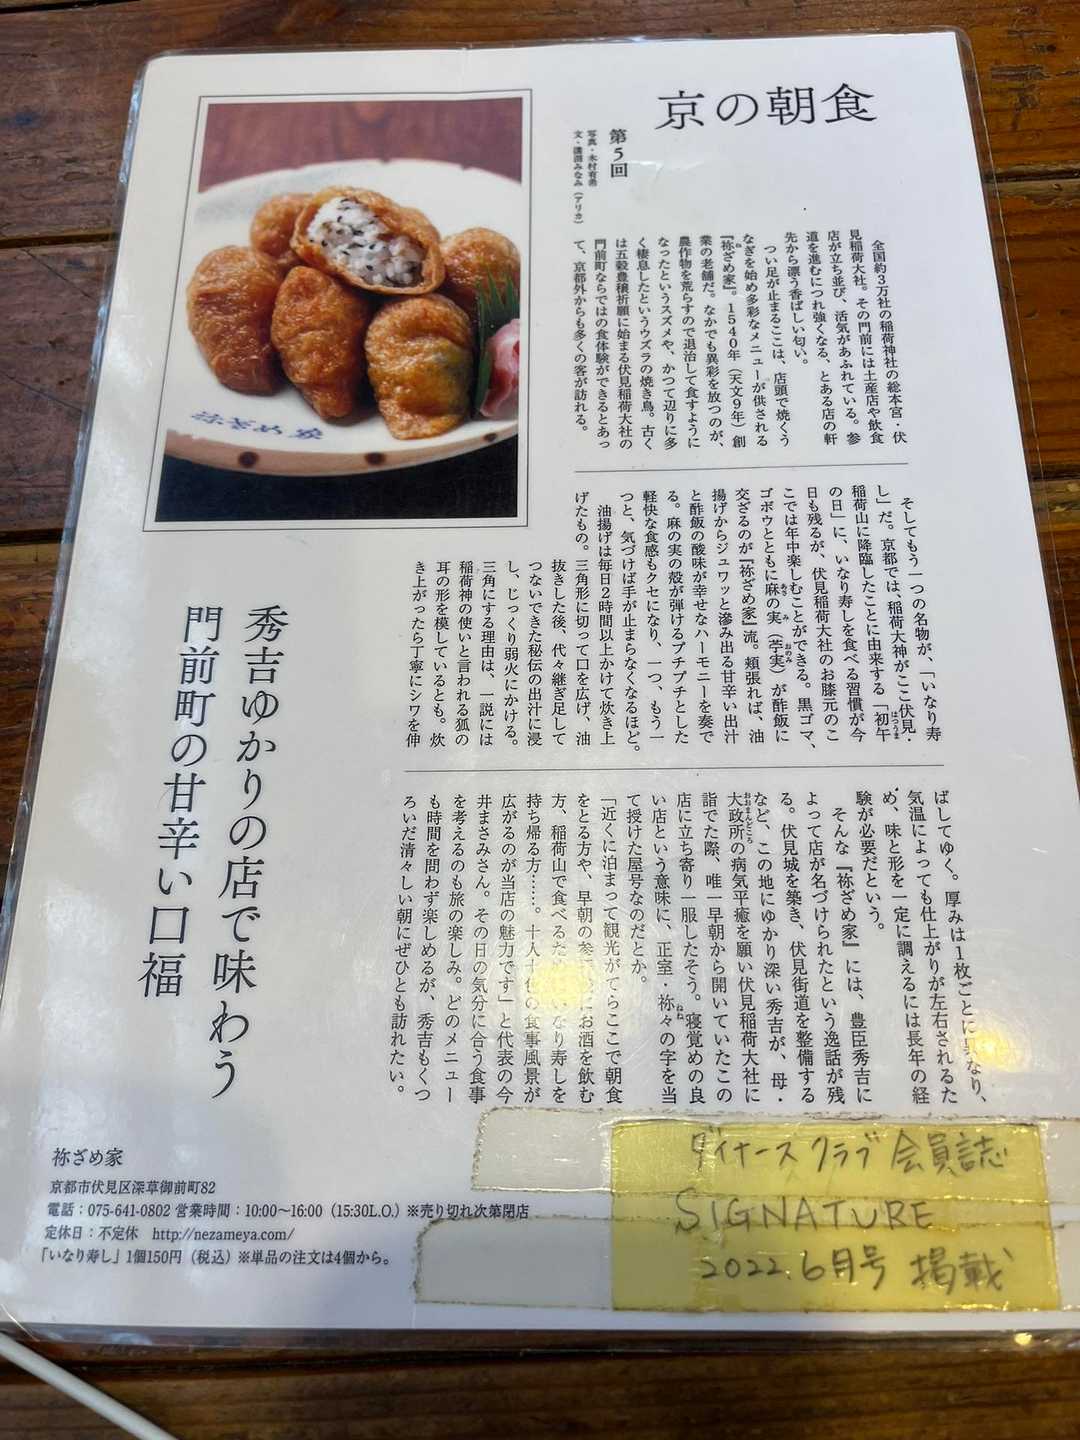 京の朝食
第5回
写真・木村有希
文・溝渕みなみ（アリカ）
全国約3万社の稲荷神社の総本宮・伏
見稲荷大社。その門前には土産店や飲食
店が立ち並び、活気があふれている。参
道を進むにつれ強くなる、とある店の軒
先から漂う香ばしい匂い。
つい足が止まるここは、店頭で焼くう
なぎを始め多彩なメニューが供される
『祢ざめ家』。1540年（天文9年）創
業の老舗だ。なかでも異彩を放つのが、
農作物を荒らすので退治して食すように
なったというスズメや、かつて辺りに多
く棲息したというウズラの焼き鳥。古く
は五穀豊穣祈願に始まる伏見稲荷大社の
門前町ならではの食体験ができるとあっ
て、京都外からも多くの客が訪れる。
そしてもう一つの名物が、「いなり寿
し」だ。京都では、稲荷大神がここ伏見・
稲荷山に降臨したことに由来する「初午
の日」に、いなり寿しを食べる習慣が今
日も残るが、伏見稲荷大社のお膝元のこ
こでは年中楽しむことができる。黒ゴマ、
ゴボウとともに麻の実（苧実）が酢飯に
交ざるのが『祢ざめ家』流。頬張れば、油
揚げからジュワッと滲み出る甘辛い出汁
と酢飯の酸味が幸せなハーモニーを奏で
る。麻の実の殻が弾けるプチプチとした
軽快な食感もクセになり、一つ、もう一
つと、気づけば手が止まらなくなるほど。
油揚げは毎日2時間以上かけて炊き上
げたもの。三角形に切って口を広げ、油
抜きした後、代々継ぎ足して
つないできた秘伝の出汁に浸
し、じっくり弱火にかける。
三角にする理由は、一説には
稲荷神の使いと言われる狐の
耳の形を模しているとも。炊
き上がったら丁寧にシワを伸
ばしてゆく。厚みは1枚ごとに異なり、
気温によっても仕上がりが左右されるた
め、味と形を一定に調えるには長年の経
験が必要だという。
そんな『祢ざめ家』には、豊臣秀吉に
よって店が名づけられたという逸話が残
る。伏見城を築き、伏見街道を整備する
など、この地にゆかり深い秀吉が、母・
大政所の病気平癒を願い伏見稲荷大社に
詣でた際、唯一早朝から開いていたこの
店に立ち寄り一服したそう。寝覚めの良
い店という意味に、正室・祢々の字を当
て授けた屋号なのだとか。
「近くに泊まって観光がてらここで朝食
をとる方や、早朝の参拝後にお酒を飲む
方、稲荷山で食べるためにいなり寿しを
持ち帰る方……。十人十色の食事風景が
広がるのが当店の魅力です」と代表の今
井まさみさん。その日の気分に合う食事
を考えるのも旅の楽しみ。どのメニュー
も時間を問わず楽しめるが、秀吉もくつ
ろいだ清々しい朝にぜひとも訪れたい。
秀吉ゆかりの店で味わう
門前町の甘辛い口福
祢ざめ家
祢ざめ家
京都市伏見区深草御前町82
電話：075-641-0802 営業時間：10:00〜16:00（15:30L.O.）※売り切れ次第閉店
定休日：不定休 http://nezameya.com/
「いなり寿し」1個150円（税込）※単品の注文は4個から。
ダイナースクラブ会員誌
SIGNATURE
2022.6月号 掲載